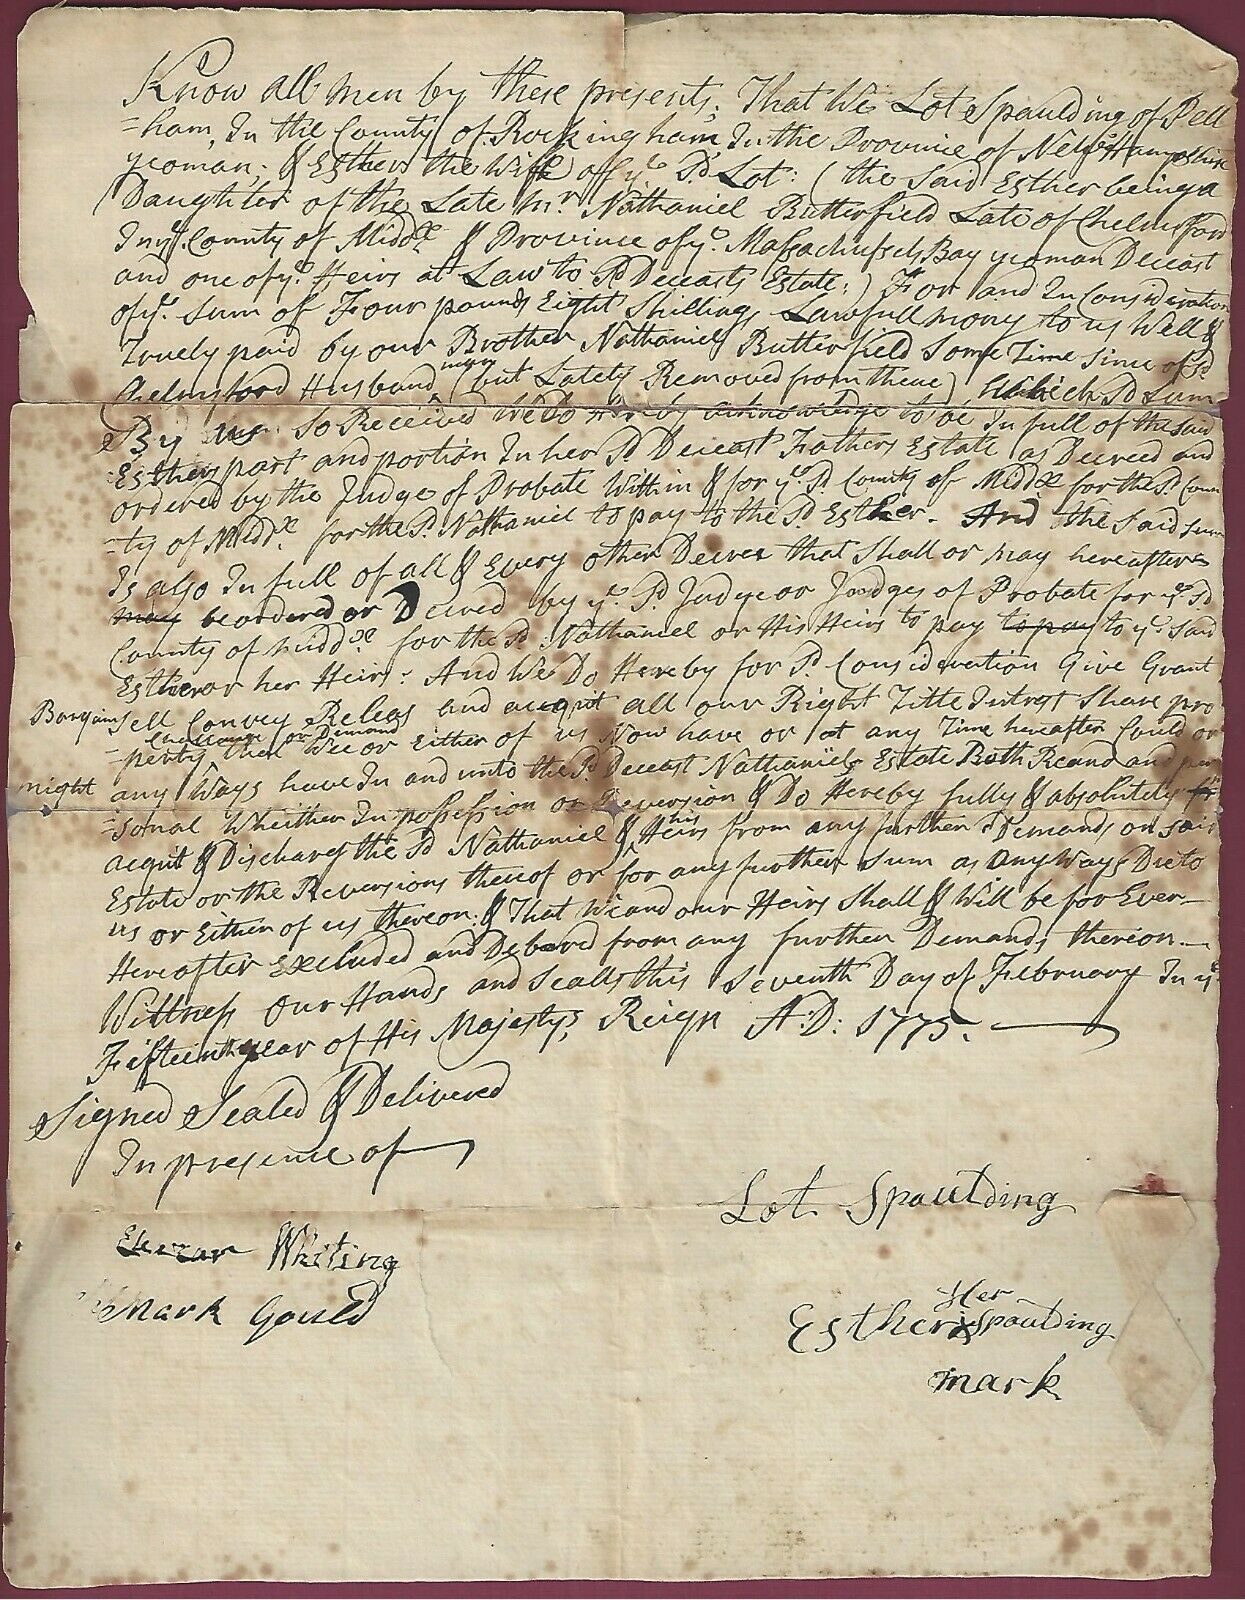 Know all men by these presents; That We Lot Spaulding of Pell
=ham, In the County of Rockingham In the Province of New Hampshire
yeoman; & Esther the Wife of ye. Sd. Lot: (the Said Esther being a
Daughter of the Late Mr. Nathaniel Butterfield Late of Chelmsford
In ye County of Middx & Province of ye. Massachusets Bay yeoman Deceast
and one of ye. Heirs at Law to Sd Deceasts Estate;) For and In Consideration
of ye. Sum of Four pounds Eight Shillings Lawfull mony to us Well &
Truely paid by our Brother Nathaniel Butterfield Some Time Since of Sd
Chelmsford Husbandman (but Lately Removed from there) Which Sd Sum
By us So Received We Do Hereby acknowledge to be In full of the said
Esthers part and portion In her Sd Deceast Fathers Estate as Decreed and
ordered by the Judge of Probate Within & for ye. Sd. County of Middx for the Sd Coun
-ty of Middx. for the Sd. Nathaniel to pay to the Sd Esther. And the Said Sum
Is also In full of all & Every other Decree that Shall or may hereafter
may be ordered or Decreed by ye. Sd. Judge or Judges of Probate for ye Sd
County of Middx. for the Sd: Nathaniel or His Heirs to pay to pay to ye. Said
Esther or her Heirs: And We Do Hereby for Sd. Consideration Give Grant
Bargain Sell Convey Releas and acquit all our Right Title Intrest Share pro
Challange or Demand
=perty that We or Either of us Now have or at any Time hereafter Could or
might any Ways have In and unto the Sd Deceast Nathaniels Estate Both Real and per
=sonal Wheither In possession or Reversion & Do Hereby fully & absolutely
acquit & Discharge the Sd Nathaniel & his Heirs from any further Demands on said
Estate or the Reversions thereof or for any further Sum as any Ways Due to
us or Either of us thereon: & That We and our Heirs Shall & Will be for Ever
Hereafter Excluded and Debared from any further Demands thereon
Wittness our Hands and Sealls this Seventh Day of February In ye
Fifteenth year of His Majestys Reign A:D: 1775.
Signed Sealed & Delivered
In presence of
Lot Spaulding
Eleazar Whiting
Mark Gould
Her
Esther X Spaulding
mark